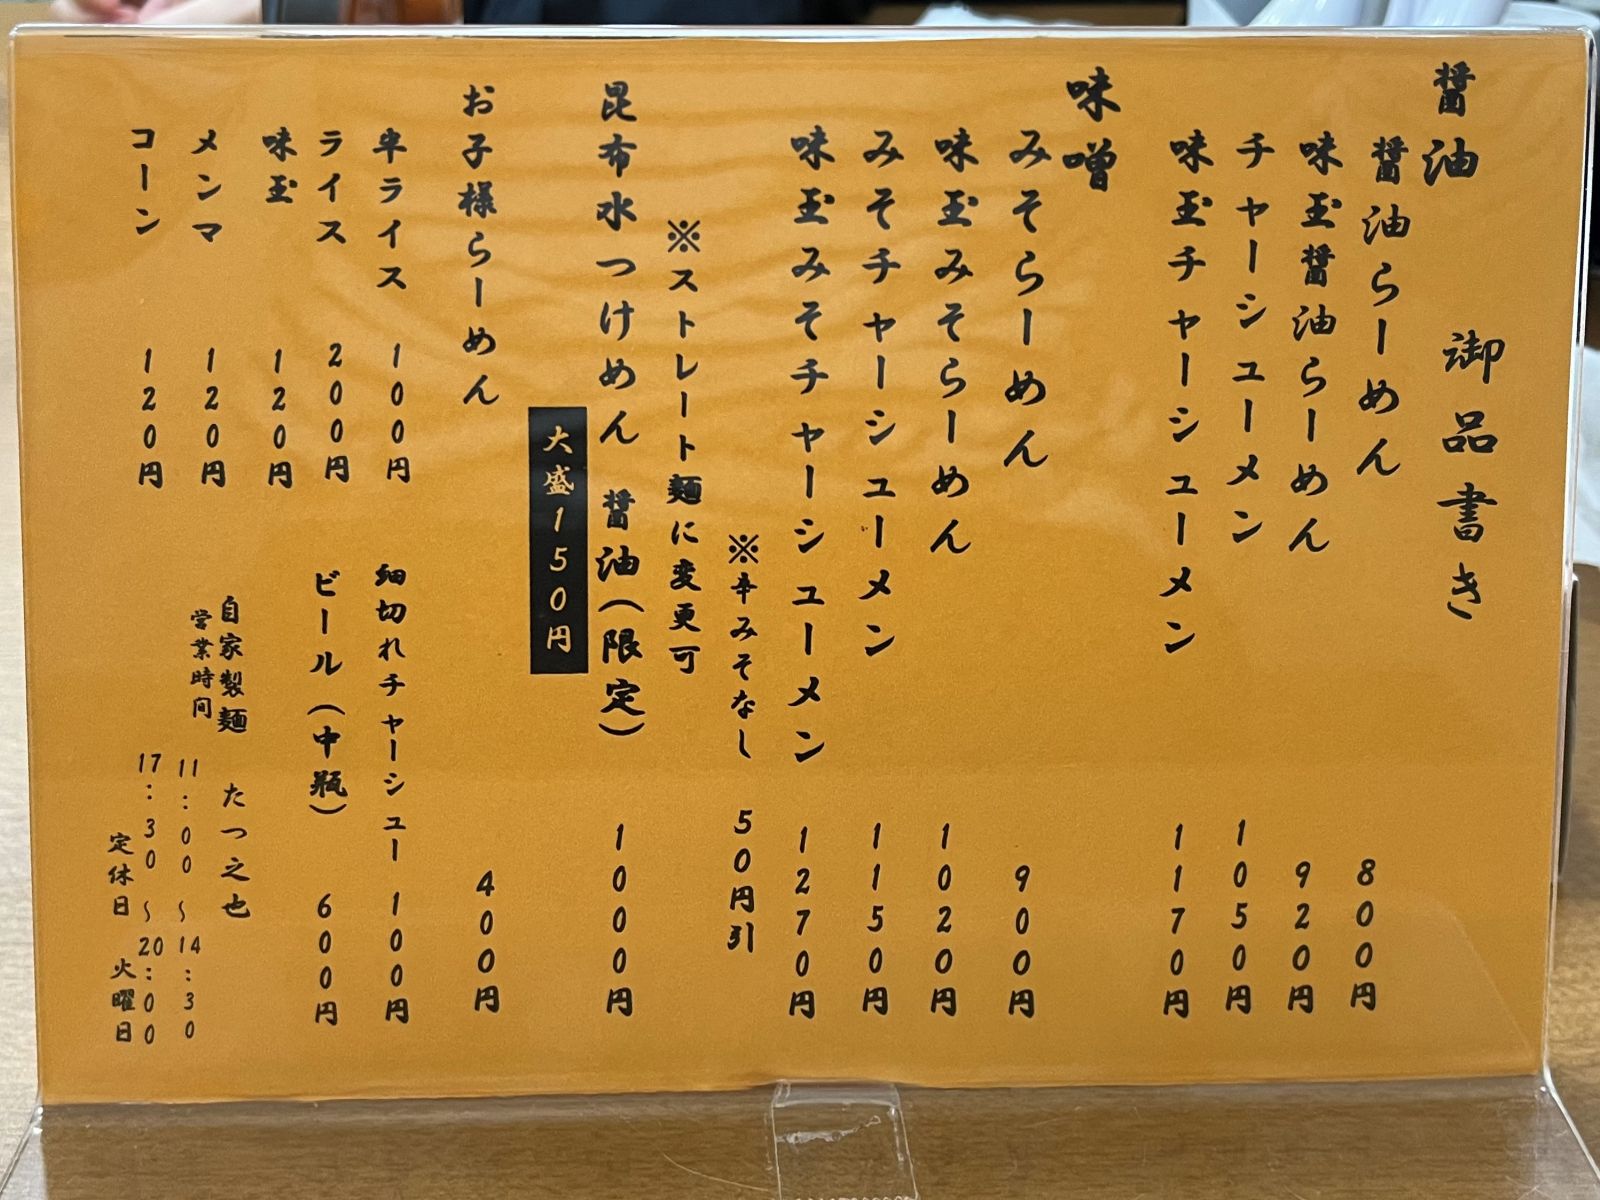 御品書き
醤油
醤油らーめん 800円
味玉醤油らーめん 920円
チャーシューメン 1050円
味玉チャーシューメン 1170円
味噌
みそらーめん 900円
味玉みそらーめん 1020円
みそチャーシューメン 1150円
味玉みそチャーシューメン 1270円
※辛みそなし 50円引
※ストレート麺に変更可
昆布水つけめん 醤油(限定) 1000円
大盛150円
お子様らーめん 400円
半ライス 100円
細切れチャーシュー 100円
ライス 200円
ビール(中瓶) 600円
味玉 120円
メンマ 120円
コーン 120円
自家製麺 たつ之也
営業時間 11:00~14:30
17:30~20:00
定休日 火曜日